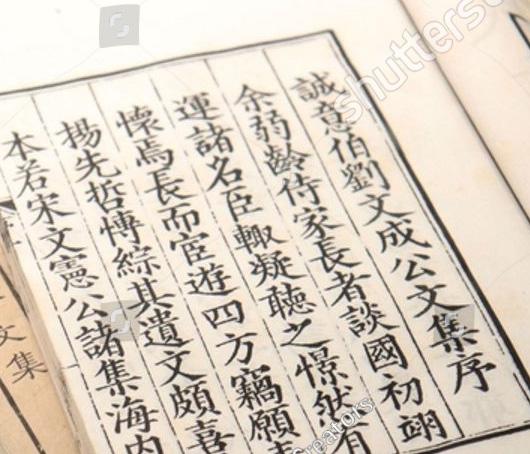 誠意伯劉文成公文集序
余弱齡侍家長者談國初翊
運諸名臣輙凝聽之憬然有
懷焉長而宦遊四方竊願
揚先哲博綜其遺文頗喜
本若宋文憲公諸集海内
文集
shutters
Creators